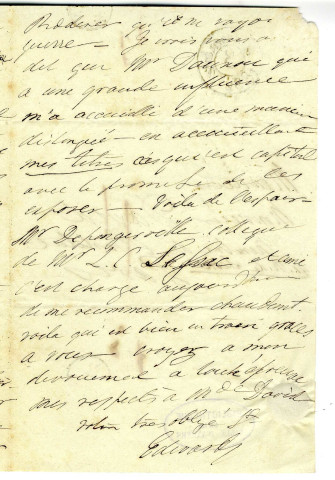 qu'il ne voyait
guère – Je vous ai
dit que Mr Daunou qui
a une grande influence
m'a accueilli d'une manière
distinguée – en accueillant
mes titres ce qui est capital
avec la promesse de les
exposer – Voilà de l'espoir
Mr Depongerville collègue
de Mr L. C. et ami
s'est chargé aujourd'hui
de me recommander chaudement
voilà qui est bien en train
à vous croyez à mon
devouement à toute épreuve
mes respects à Mde David
votre tres obligé Sr
Edwards